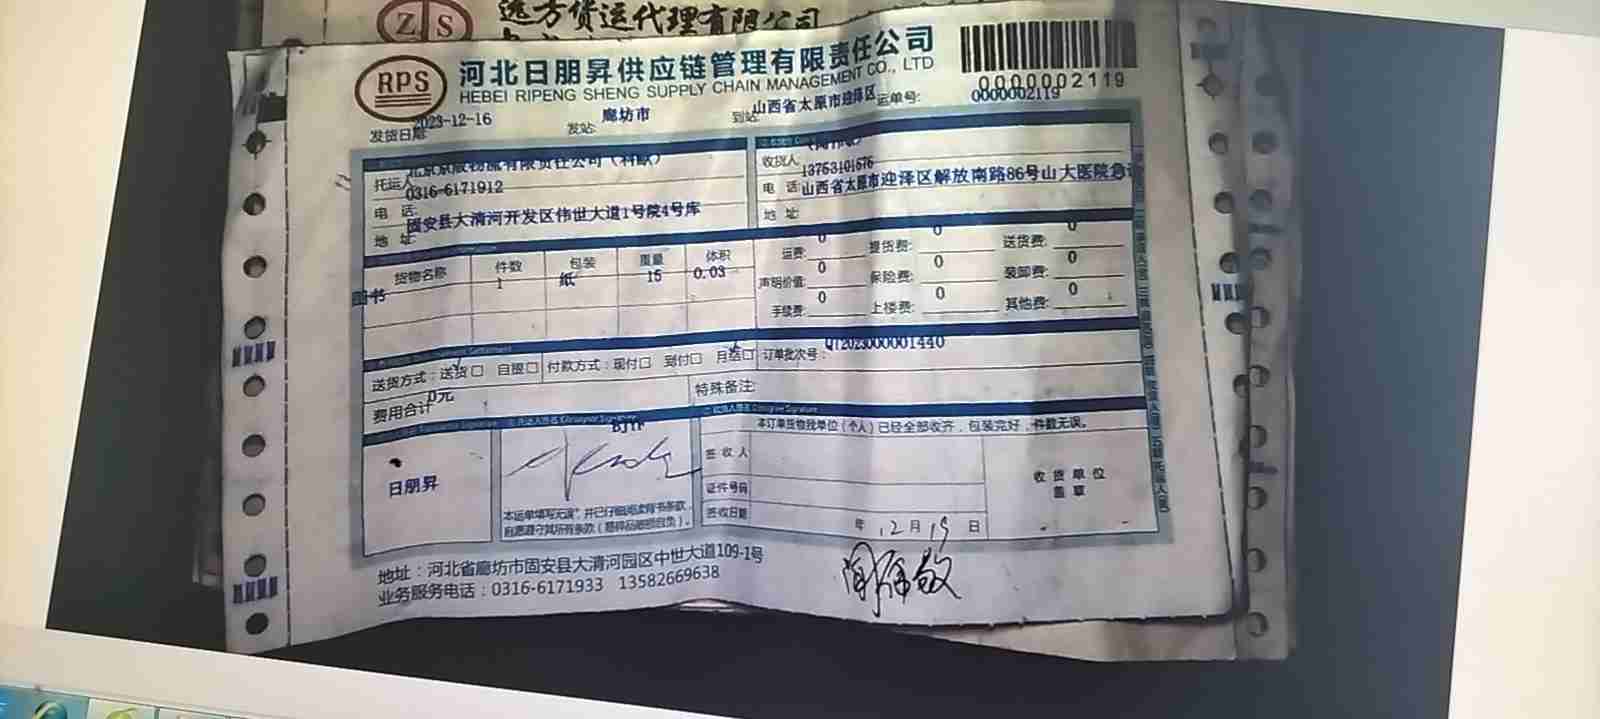 ZTS 远方货运代理有限公司
RPS 河北日朋昇供应链管理有限责任公司
HEBEI RIPENG SHENG SUPPLY CHAIN MANAGEMENT CO., LTD
0000002119
发货日期: 2023-12-16 发站: 廊坊市 到站: 山西省太原市迎泽区 运单号: 0000002119
托运人 北京京版物流有限责任公司（科献） 收货人
电 话: 0316-6171912 电 话: 13753101676
地 址: 固安县大清河开发区伟世大道1号院4号库 地 址: 山西省太原市迎泽区解放南路86号山大医院急诊
货物名称 件数 包装 重量 体积
图书 1 纸 15 0.03
运费: 0 提货费: 0 送货费: 0
声明价值: 0 保险费: 0 装卸费: 0
手续费: 0 上楼费: 0 其他费: 0
送货方式: 送货□ 自提□ 付款方式: 现付□ 到付□ 月结□ 订单批次号: QT2023000001440
费用合计 0元 特殊备注:
BJYF
日朋昇
本运单填写无误，并已仔细阅读背书条款，
自愿遵守其所有条款（易碎品破损自负）。
本订单货物我单位（个人）已经全部收齐，包装完好，件数无误。
签收人
证件号码
签收日期 年 12月19日
收货单位
盖章
地址：河北省廊坊市固安县大清河园区中世大道109-1号
业务服务电话：0316-6171933 13582669638